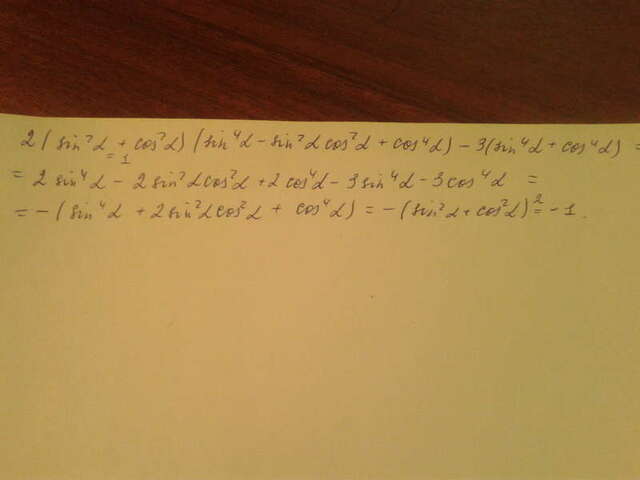 2(sin²α + cos²α)(sin⁴α - sin²α cos²α + cos⁴α) - 3(sin⁴α + cos⁴α) =
= 1
= 2 sin⁴α - 2 sin²α cos²α + 2 cos⁴α - 3 sin⁴α - 3 cos⁴α =
= -(sin⁴α + 2 sin²α cos²α + cos⁴α) = -(sin²α + cos²α)² = -1.